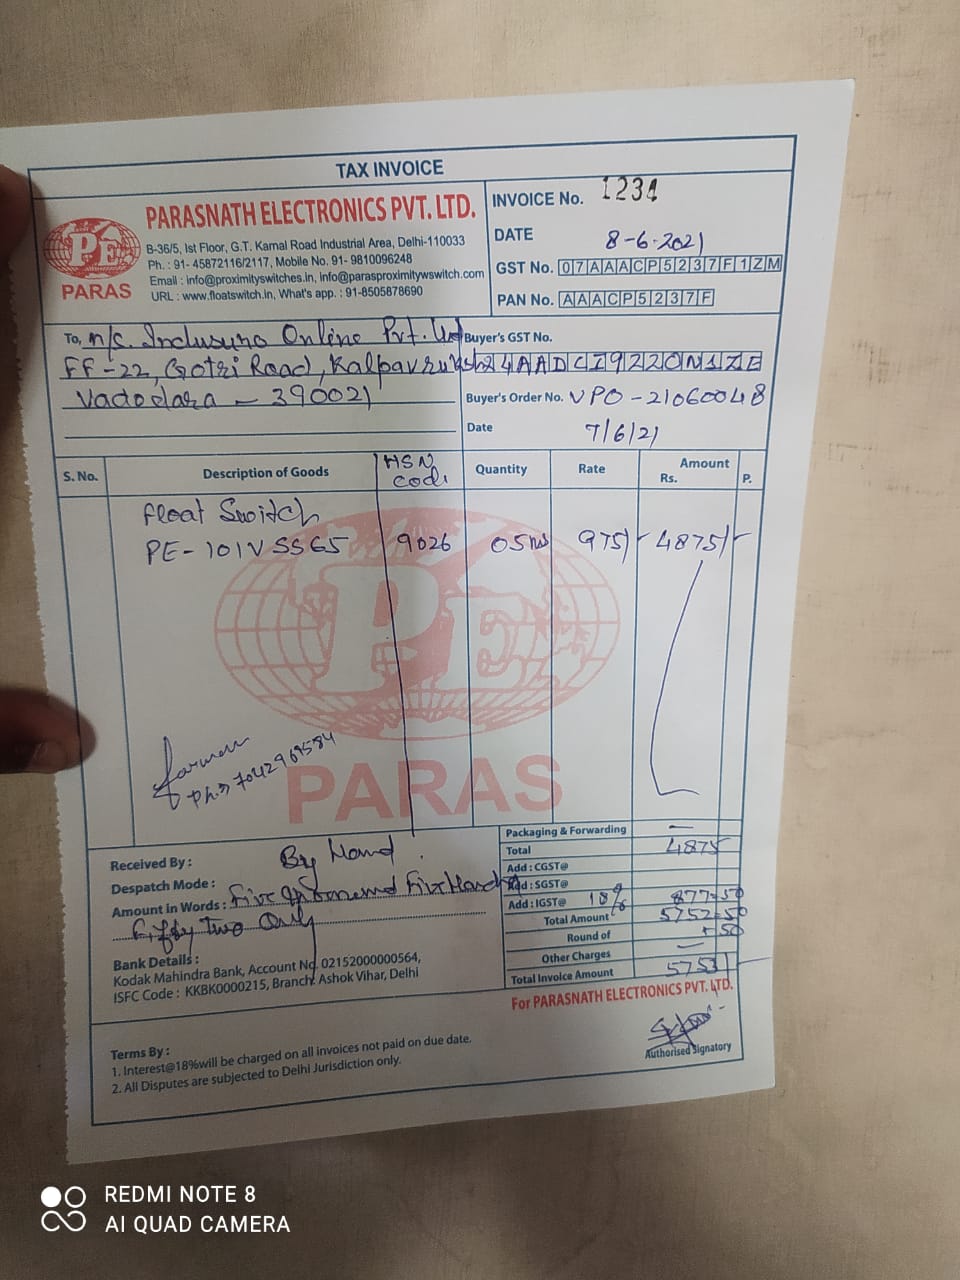 TAX INVOICE
PARASNATH ELECTRONICS PVT. LTD.
B-36/5, Ist Floor, G.T. Karnal Road Industrial Area, Delhi-110033
Ph. : 91- 45872116/2117, Mobile No. 91- 9810096248
Email : info@proximityswitches.in, info@parasproximitywswitch.com
URL : www.floatswitch.in, What's app. : 91-8505878690
PE
PARAS
INVOICE No. 1234
DATE 8-6-2021
GST No. 07AAACP5237F1ZM
PAN No. AAACP5237F
To, m/s. Inclusure Online Pvt. Ltd
FF-22, Gotri Road, Kalpavruksh
Vadodara - 390021
Buyer's GST No.
24AADCI9220N1ZE
Buyer's Order No. VPO-21060048
Date 7/6/21
S. No. Description of Goods HSN Code Quantity Rate Amount Rs. P.
Float Switch
PE-101VSSG5 9026 05 975/- 4875/-
PE
PARAS
Ph.> 7042969584
Received By :
Despatch Mode : By Hand
Amount in Words : Five Five
Fifty Two Only
Bank Details :
Kodak Mahindra Bank, Account No. 02152000000564,
ISFC Code : KKBK0000215, Branch: Ashok Vihar, Delhi
Packaging & Forwarding —
Total 4875
Add : CGST@
Add : SGST@
Add : IGST@ 18% 877=50
Total Amount 5752=50
Round of +50
Other Charges —
Total Invoice Amount 5753/-
For PARASNATH ELECTRONICS PVT. LTD.
Authorised Signatory
Terms By :
1. Interest@18%will be charged on all invoices not paid on due date.
2. All Disputes are subjected to Delhi Jurisdiction only.
REDMI NOTE 8
AI QUAD CAMERA